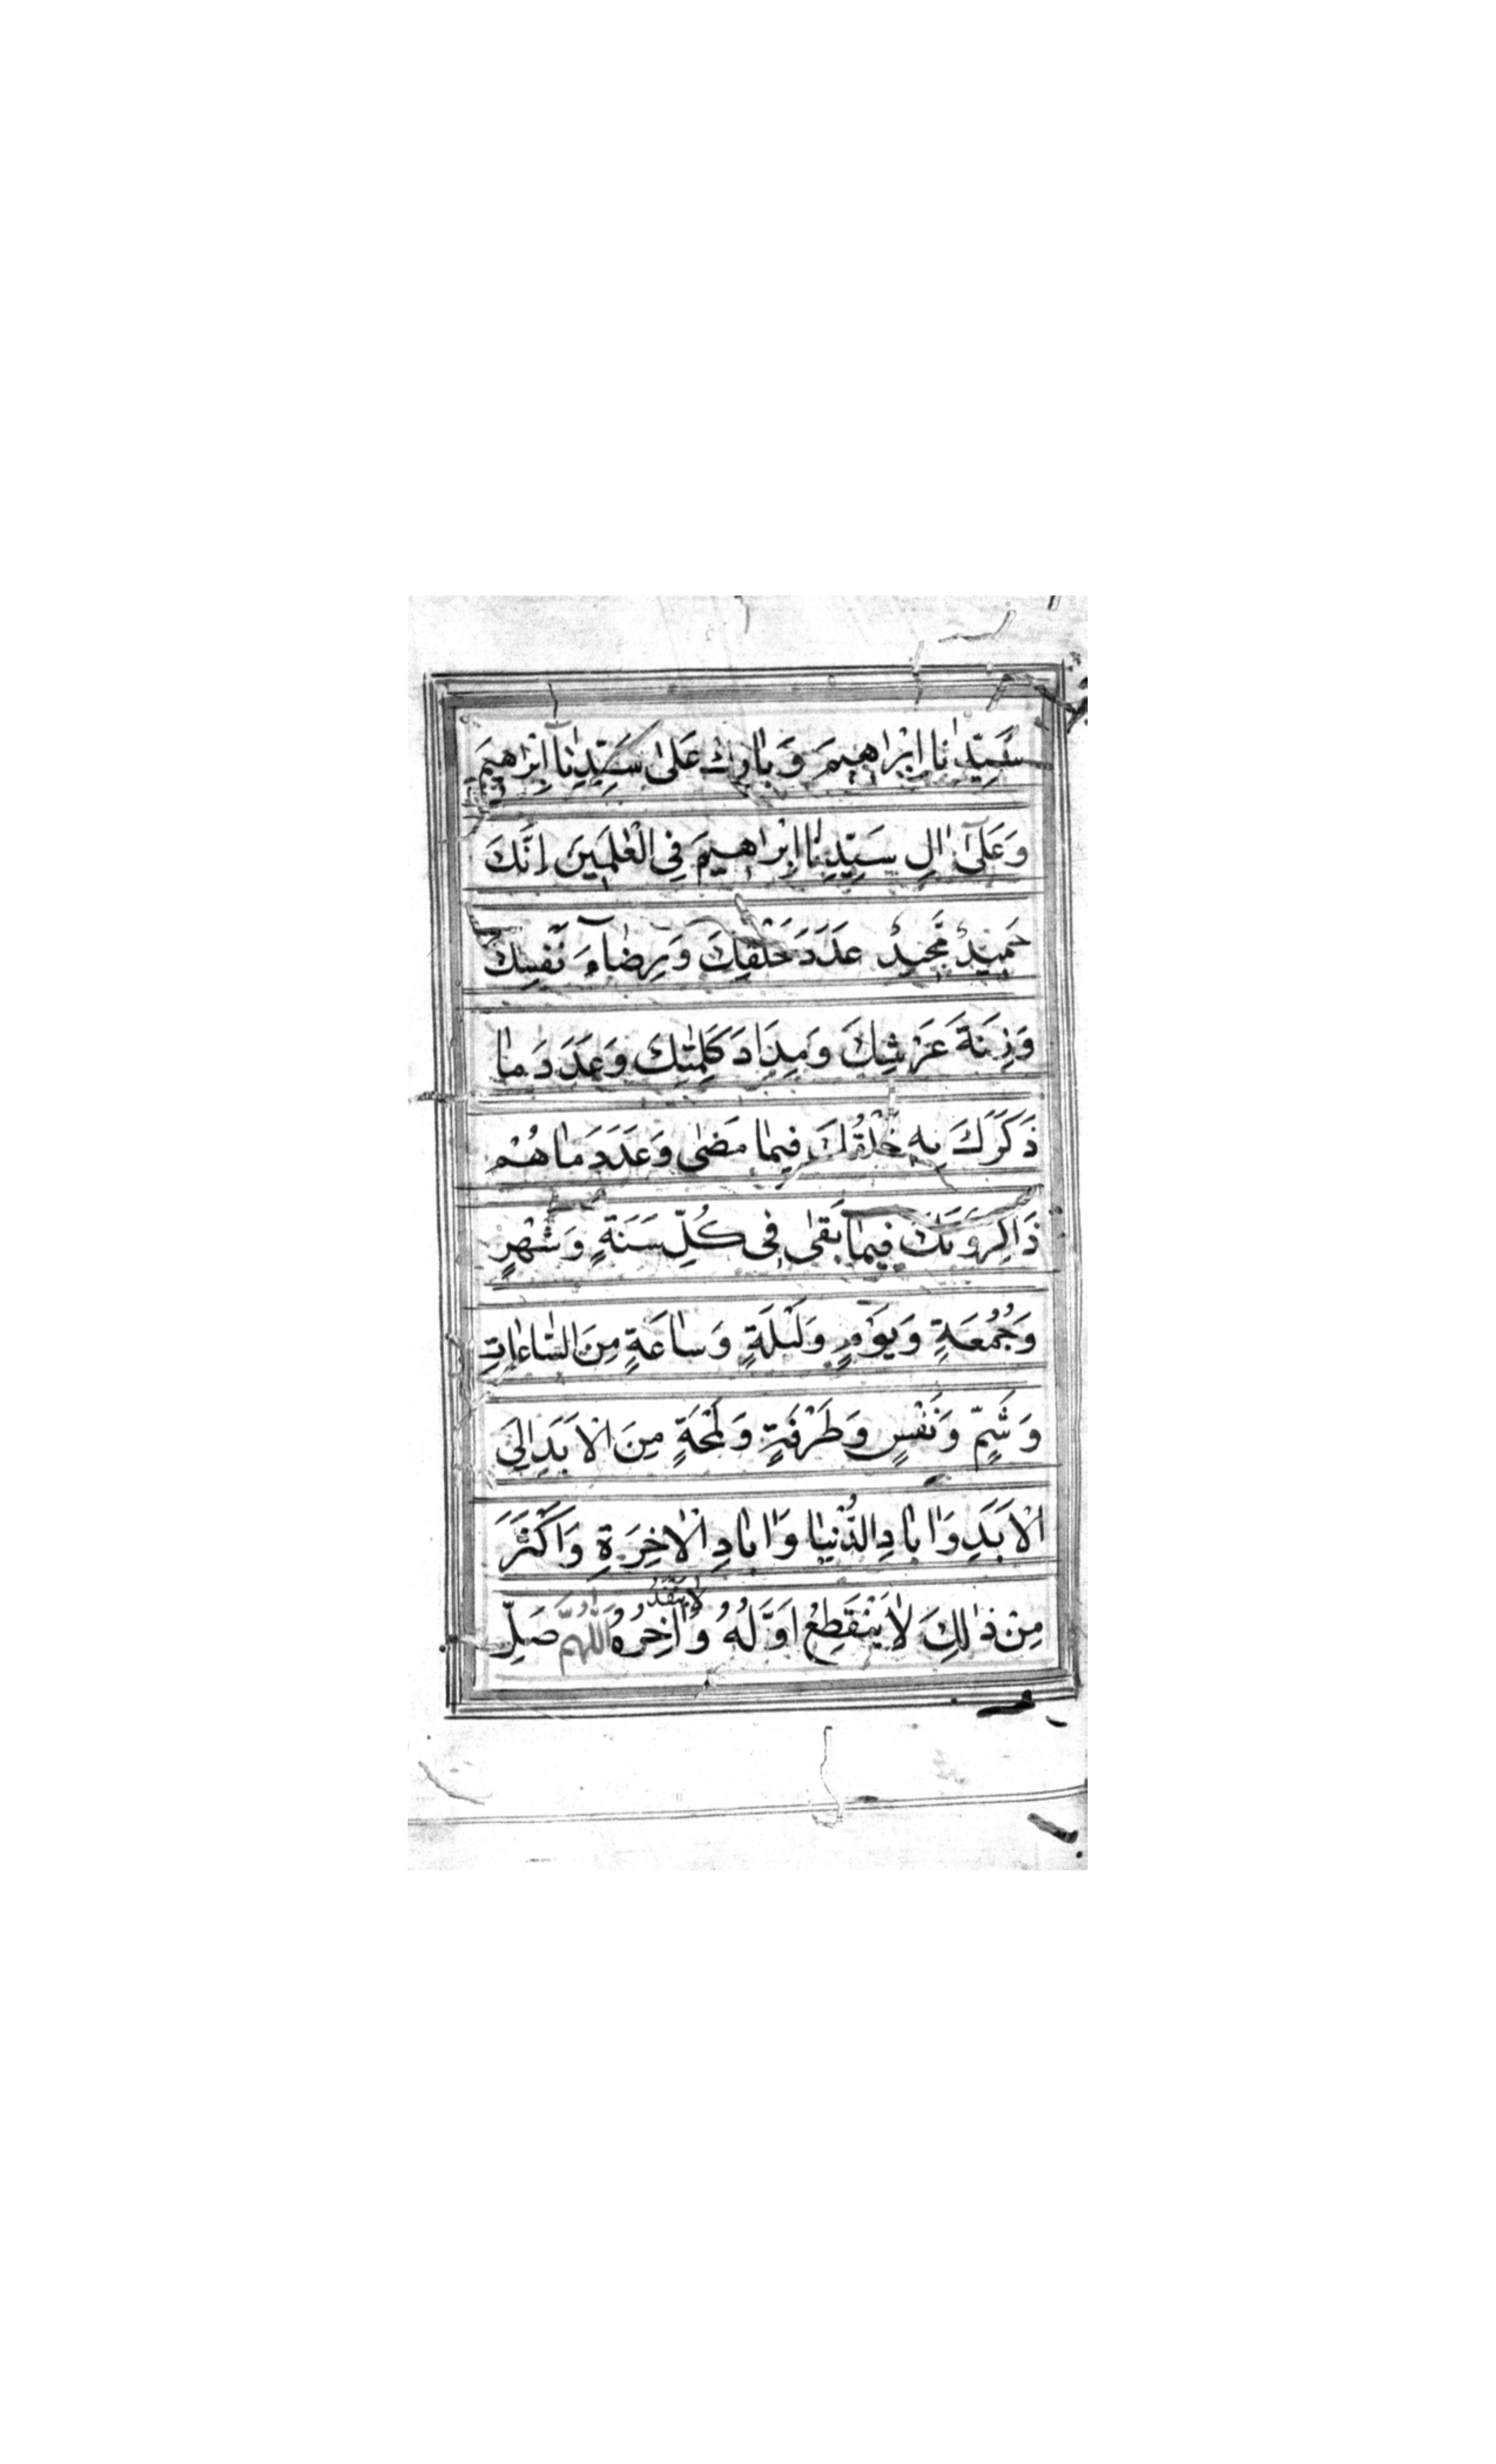 سَيِّدِنَا اِبْرَاهِيمَ وَبَارِكْ عَلٰى سَيِّدِنَآ اِبْرَاهِيمَ
وَعَلٰىٓ اٰلِ سَيِّدِنَا اِبْرَاهِيمَ فِي الْعٰلَمِينَ اِنَّكَ
حَمِيْدٌ مَّجِيْدٌ عَدَدَ خَلْقِكَ وَرِضَآءَ نَفْسِكَ
وَزِنَةَ عَرْشِكَ وَمِدَادَ كَلِمٰتِكَ وَعَدَدَ مَا
ذَكَرَكَ بِهٖ خَلْقُكَ فِيمَا مَضٰى وَعَدَدَ مَا هُمْ
ذَاكِرُونَكَ فِيمَا بَقٰى فِى كُلِّ سَنَةٍ وَشَهْرٍ
وَجُمُعَةٍ وَيَوْمٍ وَلَيْلَةٍ وَسَاعَةٍ مِنَ السَّاعَاتِ
وَشَمٍّ وَنَفَسٍ وَطَرْفَةٍ وَلَمْحَةٍ مِنَ الْاَبَدِ اِلَى
الْاَبَدِ وَاٰبَادِ الدُّنْيَا وَاٰبَادِ الْاٰخِرَةِ وَاَكْثَرَ
لَا يَنْفَدُ
مِنْ ذٰلِكَ لَا يَنْقَطِعُ اَوَّلُهُ وَاٰخِرُهُ اَللّٰهُمَّ صَلِّ